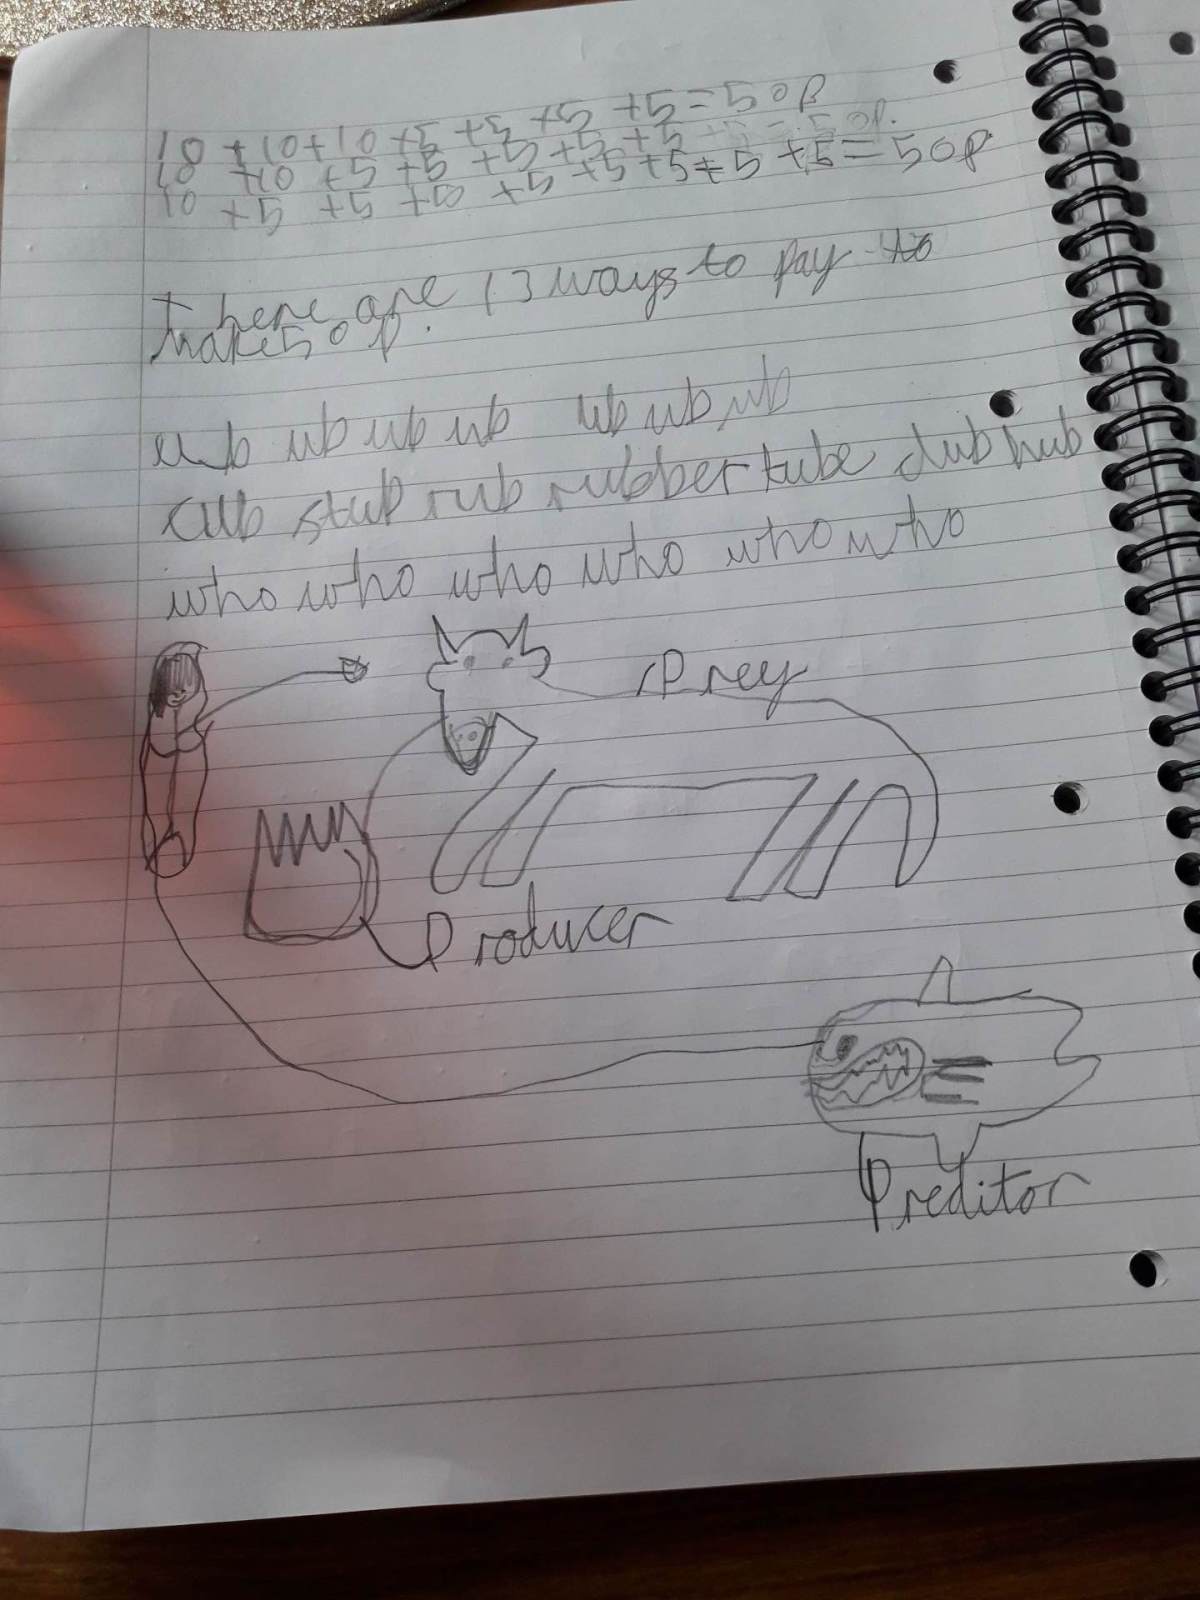 10 + 10 + 10 + 5 + 5 + 5 + 5 = 50p
10 + 10 + 5 + 5 + 5 + 5 + 5 = 50p.
10 + 5 + 5 + 5 + 5 + 5 + 5 + 5 + 5 = 50p
There are 13 ways to pay to
make 50p.
ub ub ub ub ub ub ub
cub stub rub rubber tube dub hub
who who who who who who
Prey
Producer
Preditor